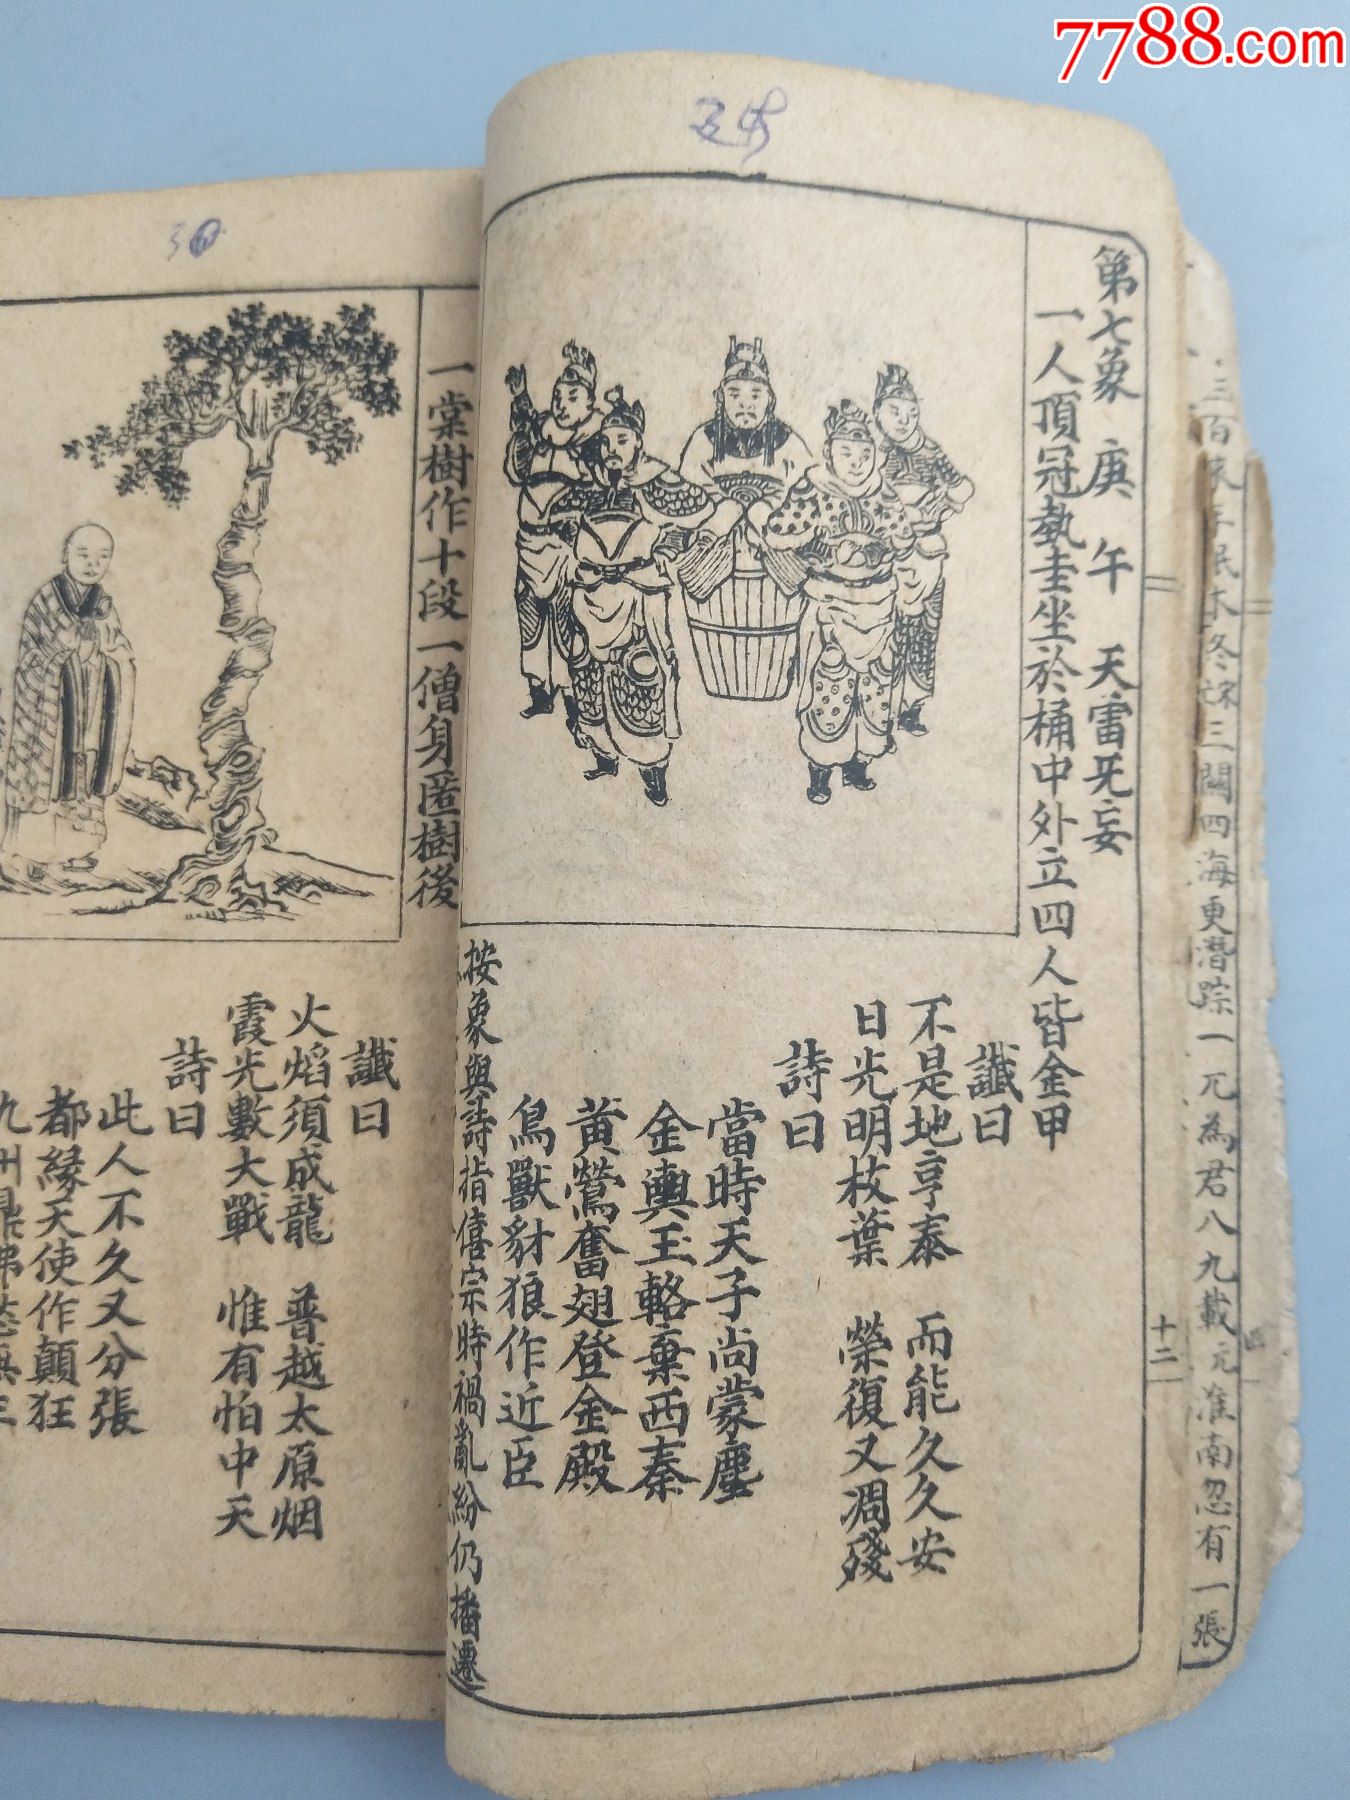 7788.com
第七象 庚午 天雷旡妄
一人頂冠執圭坐於桶中外立四人皆金甲
讖曰
不是地亨泰 而能久久安
日光明枝葉 榮復又凋殘
詩曰
當時天子尚蒙塵
金輿玉輅棄西秦
黄鶯奮翅登金殿
鳥獸豺狼作近臣
按象與詩指僖宗時禍亂紛仍播遷
十二
一棠樹作十段一僧身匿樹後
讖曰
火焰須成龍 普越太原烟
霞光數大戰 惟有怕中天
詩曰
此人不久又分張
都縁天使作顛狂
三百
三關四海更潛踪一兀為君八九載元准南忽有一張
四